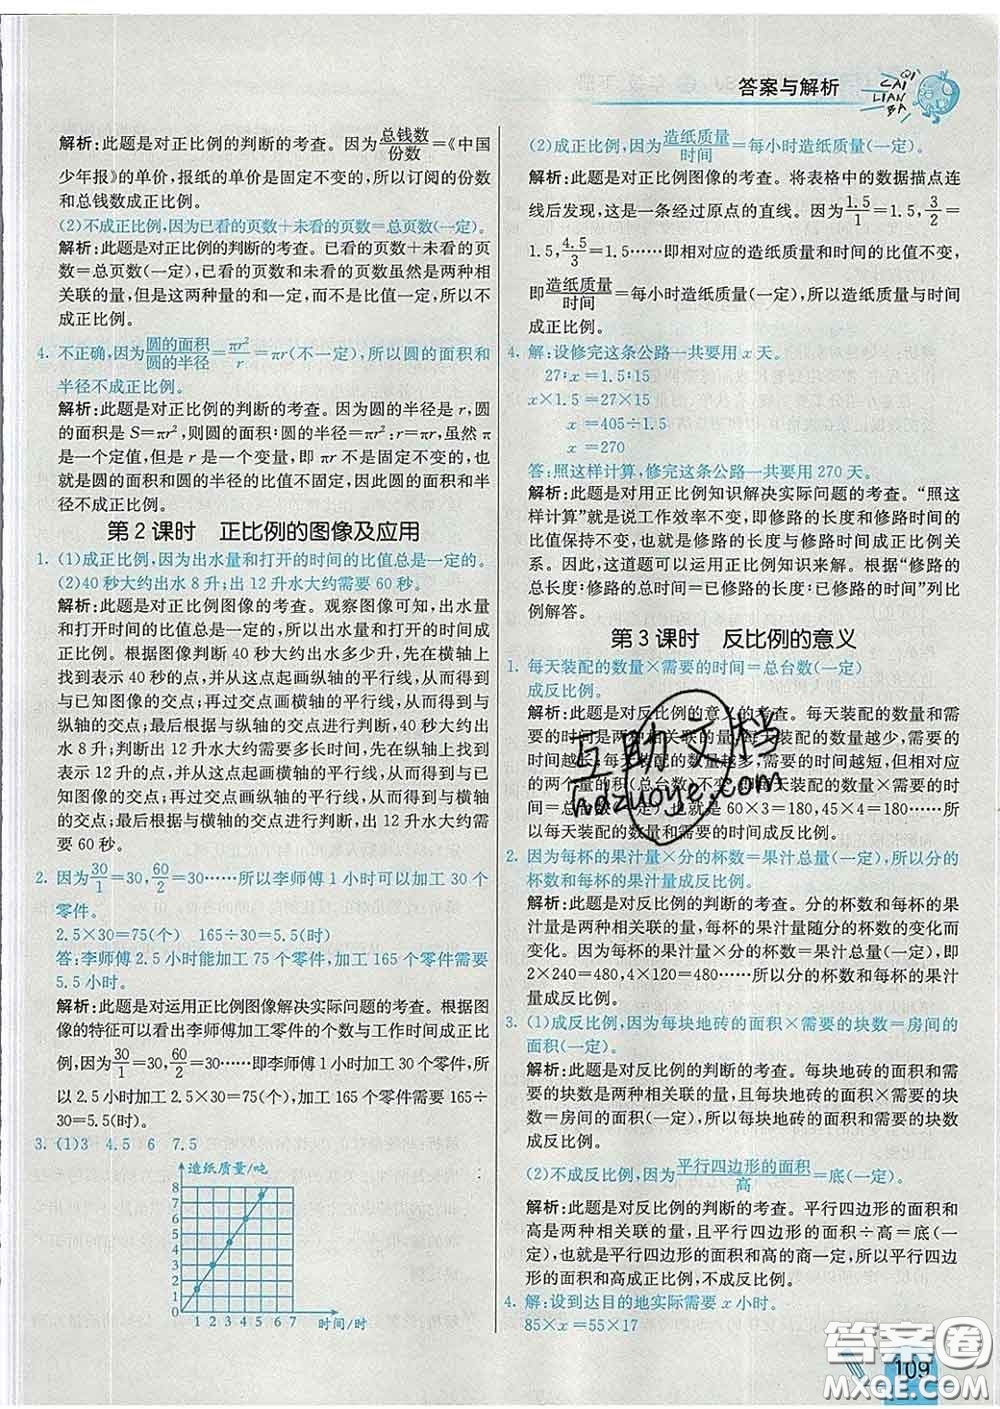 答案与解析
QI
CAI
LIAN
BA
解析:此题是对正比例的判断的考查。因为总钱数/份数=《中国
少年报》的单价,报纸的单价是固定不变的,所以订阅的份数
和总钱数成正比例。
(2)不成正比例,因为已看的页数+未看的页数=总页数(一定)。
解析:此题是对正比例的判断的考查。已看的页数+未看的页
数=总页数(一定),已看的页数和未看的页数虽然是两种相
关联的量,但是这两种量的和一定,而不是比值一定,所以不
成正比例。
4. 不正确,因为圆的面积/圆的半径=πr²/r=πr(不一定),所以圆的面积和
半径不成正比例。
解析:此题是对正比例的判断的考查。因为圆的半径是 r,圆
的面积是 S=πr²,则圆的面积:圆的半径=πr²:r=πr,虽然 π
是一个定值,但是 r 是一个变量,即 πr 不是一个固定值,也
就是圆的面积和圆的半径的比值不固定,因此圆的面积和圆
的半径不成正比例。
第 2 课时 正比例的图像及应用
1. (1)成正比例,因为出水量和打开的时间的比值总是一定的。
(2)40 秒大约出水 8 升;出 12 升水大约需要 60 秒。
解析:此题是对正比例图像的考查。观察图像可知,出水量
和打开时间的比值总是一定的,所以出水量和打开时间成正
比例。根据图像判断 40 秒大约出水多少升,先在横轴上
找到表示 40 秒的点,从这个点起画纵轴的平行线,从而找到
与已知图像的交点;再过交点画横轴的平行线,从而找到与
纵轴的交点;最后根据与纵轴的交点进行判断,40 秒大约出
水 8 升;判断出 12 升水大约需要多长时间,先在纵轴上找到
表示 12 升的点,从这个点起画横轴的平行线,从而找到与
已知图像的交点;再过交点画纵轴的平行线,从而找到与横轴
的交点;最后根据与横轴的交点进行判断,出 12 升水大约
需要 60 秒。
2. 因为30/1=30,60/2=30……所以李师傅 1 小时可以加工 30 个
零件。
2.5×30=75(个) 165÷30=5.5(时)
答:李师傅 2.5 小时能加工 75 个零件,加工 165 个零件需要
5.5 小时。
解析:此题是对运用正比例图像解决实际问题的考查。根据图
像的特征可以看出李师傅加工零件的个数与工作时间成正比
例,因为30/1=30,60/2=30……即李师傅 1 小时加工 30 个零件,所
以 2.5 小时加工 2.5×30=75(个),加工 165 个零件要 165÷
30=5.5(时)。
3. (1)3 4.5 6 7.5
造纸质量/吨
8
7
6
5
4
3
2
1
0
1 2 3 4 5 6 7 时间/时
(2)成正比例,因为造纸质量/时间=每小时造纸质量(一定)。
解析:此题是对正比例图像的考查。将表格中的数据描点连
线后发现,这是一条经过原点的直线。因为1.5/1=1.5,3/2=
1.5,4.5/3=1.5……即相对应的造纸质量和时间的比值不变,
即造纸质量/时间=每小时造纸质量(一定),所以造纸质量与时间
成正比例。
4. 解:设修完这条公路一共要用 x 天。
27:x=1.5:15
x×1.5=27×15
x=405÷1.5
x=270
答:照这样计算,修完这条公路一共要用 270 天。
解析:此题是对用正比例知识解决实际问题的考查。“照这
样计算”就是说工作效率不变,即修路的长度和修路时间的
比值保持不变,也就是修路的长度与修路时间成正比例关
系。因此,这道题可以运用正比例知识来解。根据“修路的
总长度:修路的总时间=已修路的长度:已修路的时间”列比
例解答。
第 3 课时 反比例的意义
1. 每天装配的数量×需要的时间=总台数(一定)
成反比例。
解析:此题是对反比例的意义的考查。每天装配的数量和需
要的时间是两种相关联的量,每天装配的数量越少,需要的
时间越长;每天装配的数量越多,需要的时间越短,但相对应
的两个量的积(总台数)不变,即每天装配的数量×需要的时
间=总台数(一定),也就是 60×3=180,45×4=180……所
以每天装配的数量和需要的时间成反比例。
2. 因为每杯的果汁量×分的杯数=果汁总量(一定),所以分的
杯数和每杯的果汁量成反比例。
解析:此题是对反比例的判断的考查。分的杯数和每杯的果
汁量是两种相关联的量,每杯的果汁量随分的杯数的变化而
变化。因为每杯的果汁量×分的杯数=果汁总量(一定),即
2×240=480,4×120=480……所以分的杯数和每杯的果汁
量成反比例。
3. (1)成反比例,因为每块地砖的面积×需要的块数=房间的
面积(一定)。
解析:此题是对反比例的判断的考查。每块地砖的面积和需
要的块数是两种相关联的量,且每块地砖的面积×需要的块
数=房间的面积(一定),所以每块地砖的面积和需要的块数
成反比例。
(2)不成反比例,因为平行四边形的面积/高=底(一定)。
解析:此题是对反比例的判断的考查。平行四边形的面积和
高是两种相关联的量,且平行四边形的面积÷高=底(一
定),也就是平行四边形的面积和高的商一定,所以平行四边
形的面积和高成正比例,不成反比例。
4. 解:设到达目的地实际需要 x 小时。
85×x=55×17
互助文档
hdzuoye.com
答案圈
MXQE.COM
109